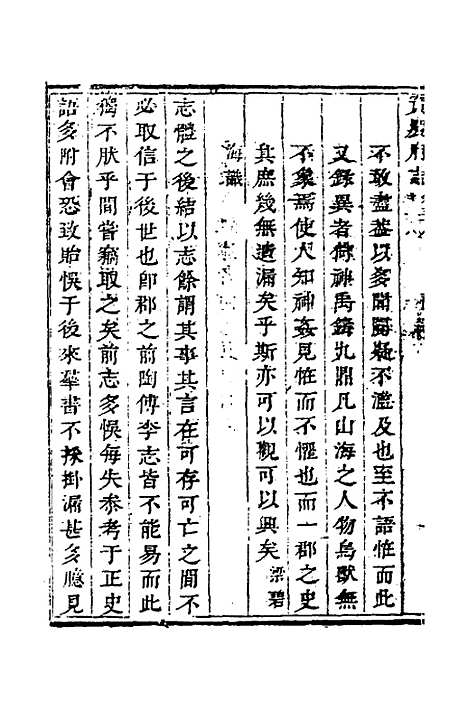 不敢盡蓋以多聞闕疑不濫及也至不語怪而此
又錄異者倣神禹鑄九鼎凡山海之人物鳥獸無
不象焉使人知神姦見怪而不懼也而一郡之史
其庶幾無遺漏矣乎斯亦可以觀可以興矣 梁碧
海識
志體之後結以志餘謂其事其言在可存可亡之間不
必取信于後世也卽郡之前陶傅李志皆不能易而此
獨不肰乎間嘗竊取之矣前志多悞每失叅考于正史
語多附會恐致貽悞于後來羣書不採掛漏甚多臆見